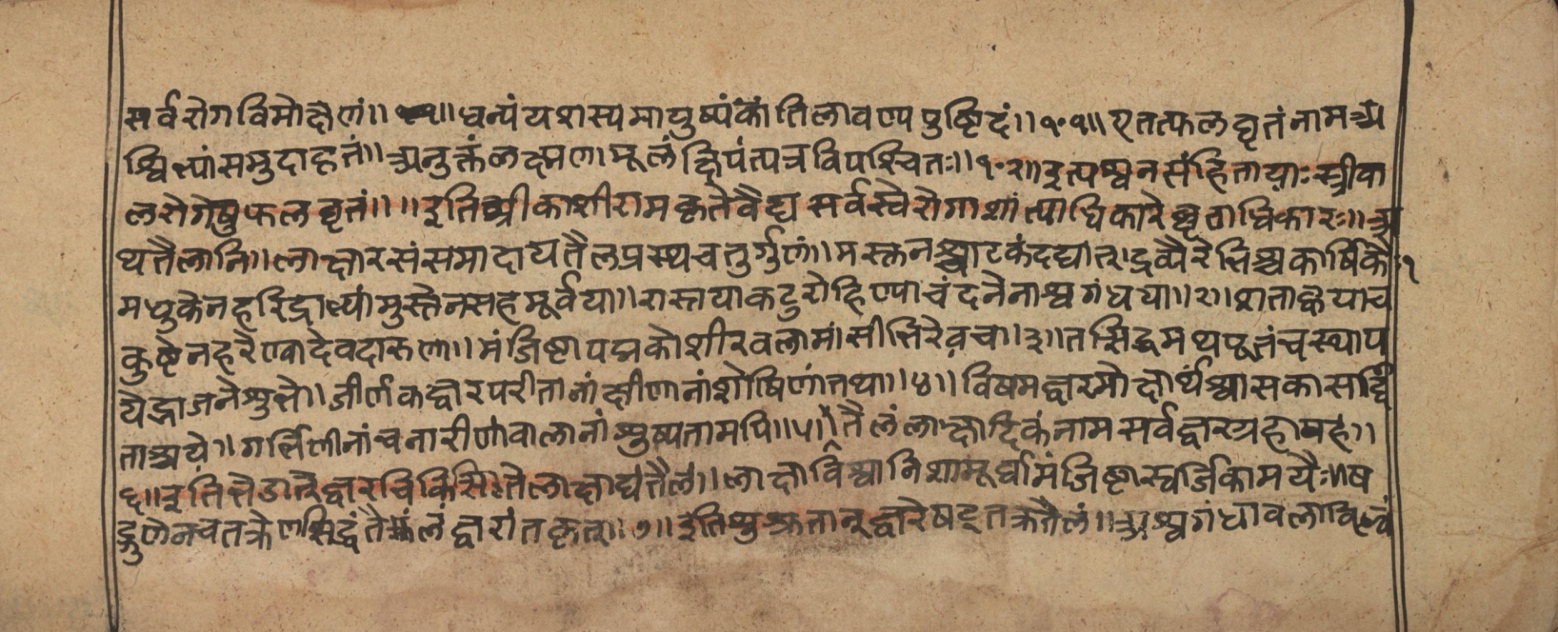 सर्वरोगविमोक्षणं॥ ॥धन्यंयशस्यमायुष्यंकांतिलावण्यपुष्टिदं॥१०१॥एतत्फलघृतंनामअ
श्विभ्यांसमुदाहृतं॥अनुक्तंलक्ष्मणामूलंक्षिपंत्यत्रविपश्चितः॥१०२॥इत्यश्वनसंहितायाः स्त्रीबा
लरोगेषुफलघृतं॥ ॥इतिश्रीकाशीरामकृतेवैद्यसर्वस्वेरोगाशांत्याधिकारेघृताधिकारः॥अ
थतैलानि॥लाक्षारसंसमादायतैलप्रस्थचतुर्गुणं॥मस्तुनश्चाटकंदद्यात्द्रव्यैरेभिश्चकार्षिकैः१
मधुकेनहरिद्राभ्यांमुस्तेनसहमूर्वया॥रास्नयाकटुरोहिण्याचंदनेनाश्वगंधया॥२॥शताह्वयाच
कुष्टेनहरेण्वादेवदारुणा॥मंजिष्टापद्मकोशीरवलामांसीभिरेवचा॥३॥तसिद्धमथपूतंचस्थाप
येद्भाजनेशुभे॥जीर्णकज्वरपरीतानांक्षीणानांशोषिणांतथा॥४॥विषमज्वरमो श्वासकासार्द्दि
ताश्रये॥गर्भिणीनांचनारीणांवालानांशुष्यतामपि॥५॥तैलंलाक्षादिकंनामसर्वज्वरग्रहापहं॥
६॥इति ज्वरचिकित्सि तैलाक्षाद्यंतैलं॥लाक्षाविश्वानिशामूर्वामंजिष्टास्वर्जिकामयैः॥ष
ड्गुणेनचतक्रेणसिद्धंतैलंज्वरांतकृत्॥७॥इतिशुश्रुतात्ज्वरेषट्तक्रतैलं॥अश्वगंधावला